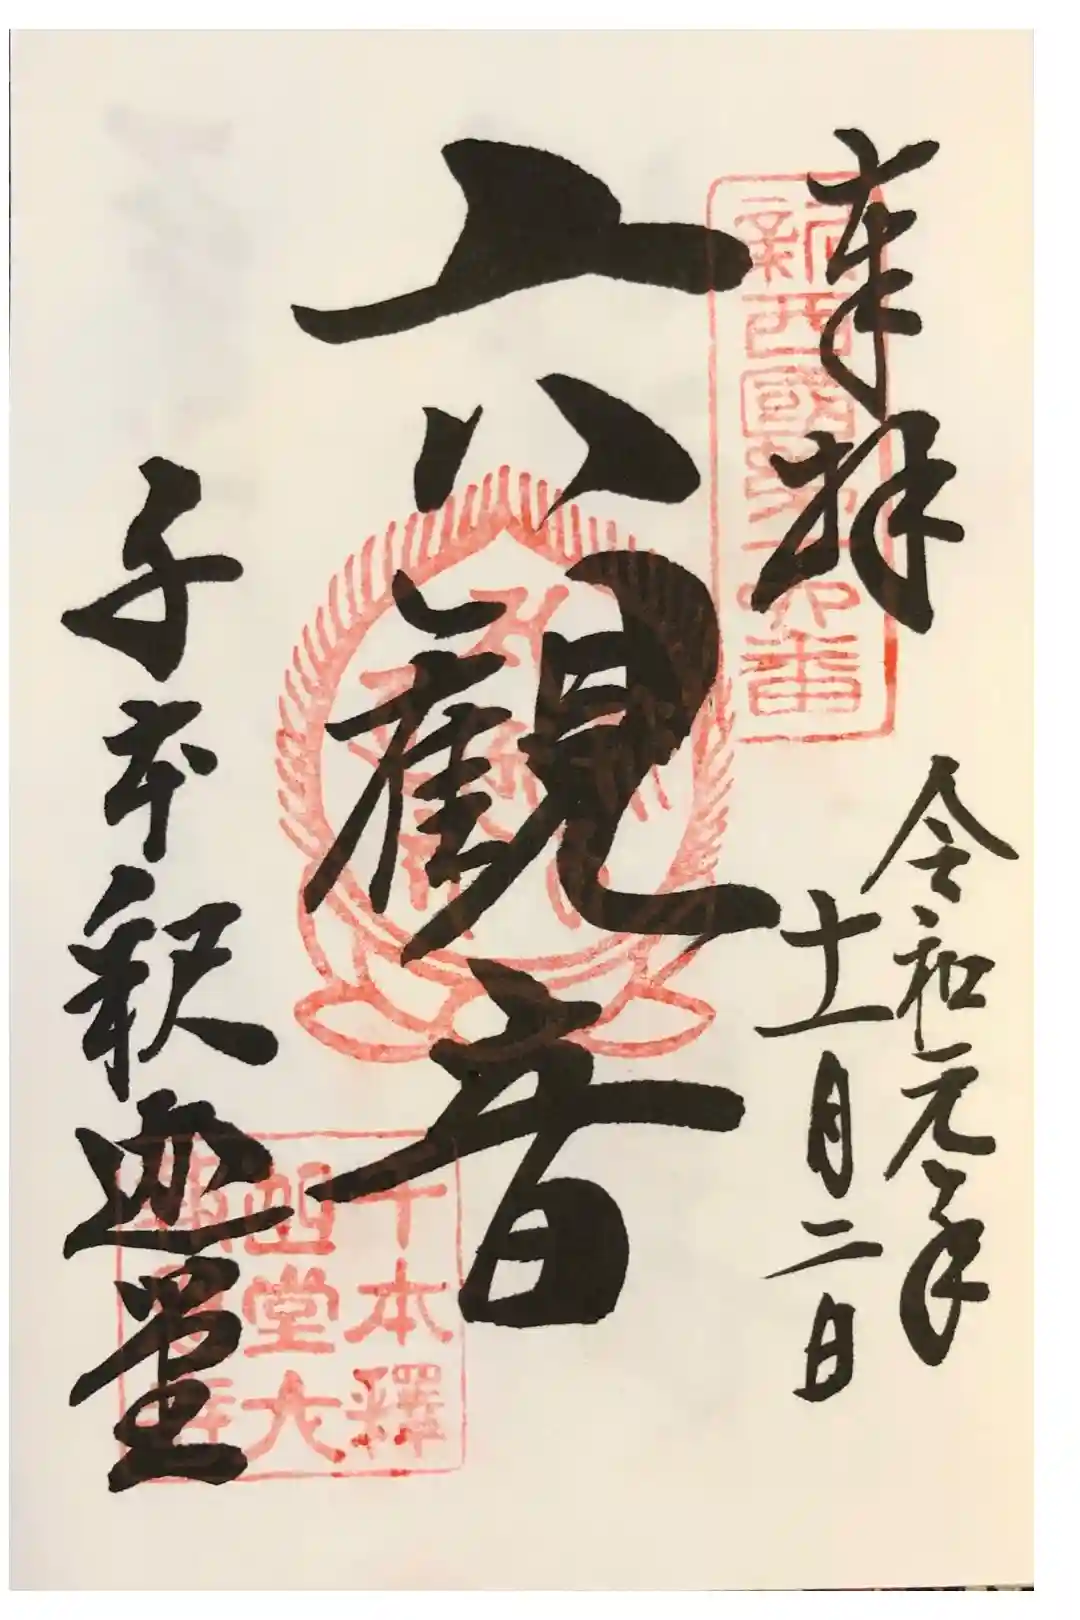 奉拝
令和元年
十一月二日
新西國第十六番
六観音
千本釈迦堂
千本釋
迦堂大
報恩寺